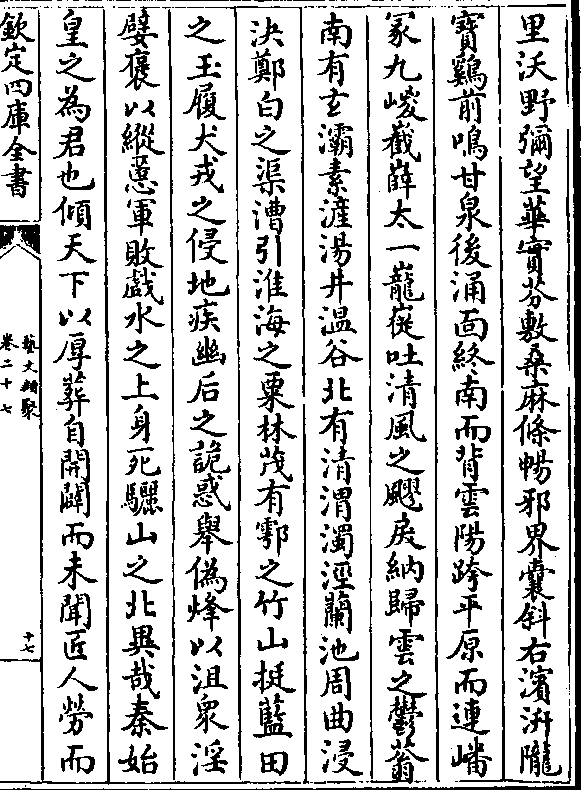 里沃野彌望華實芬敷桑麻條暢邪界襃斜右濱汧隴
寶鷄前鳴甘泉後涌面終南而背雲陽跨平原而連嶓
冢九嵕巀嶭太一巃嵸吐清風之飂戾納歸雲之鬱蓊
南有玄灞素滻湯井温谷北有清渭濁涇蘭池周曲浸
決鄭白之渠漕引淮海之粟林茂有鄠之竹山挺藍田
之玉履犬戎之侵地疾幽后之詭惑舉偽烽以沮衆淫
嬖襃以縱慝軍敗戲水之上身死驪山之北異哉秦始
皇之為君也傾天下以厚葬自開闢而未聞匠人勞而
欽定四庫全書
藝文類聚
卷二十七
十七